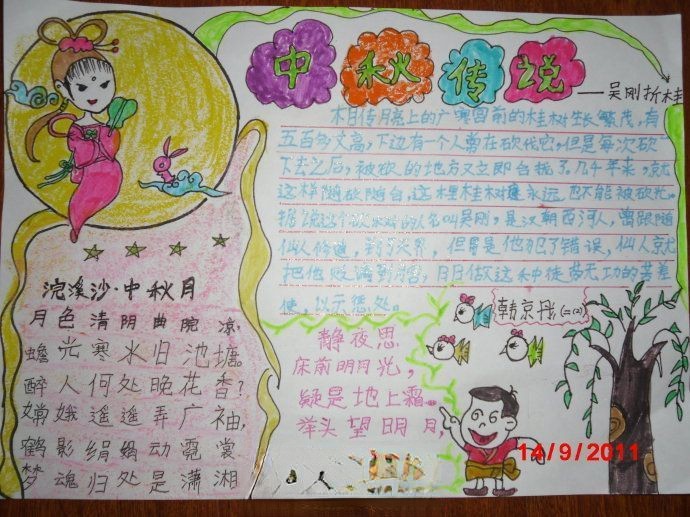 中秋传说
——吴刚折桂
相传月亮上的广寒宫前的桂树生长繁茂,有
五百多丈高,下边有一个人常在砍伐它,但是每次砍
下去之后,被砍的地方又立即合拢了。几千年来,就
这样随砍随合,这棵桂树永远也不能被砍光。
据说这个砍树的人名叫吴刚,是汉朝西河人,曾跟随
仙人修道,到了天界,但是他犯了错误,仙人就
把他贬谪到月宫,日日做这种徒劳无功的苦差
使,以示惩处。
韩京丹(二(2)
浣溪沙·中秋月
月色清阴曲院凉,
蟾光寒水归池塘。
醉人何处晚花香?
嫦娥遥遥弄广袖,
鹤影绢娟动霓裳
梦魂归处是潇湘
静夜思
床前明月光,
疑是地上霜。
举头望明月,
14/9/2011